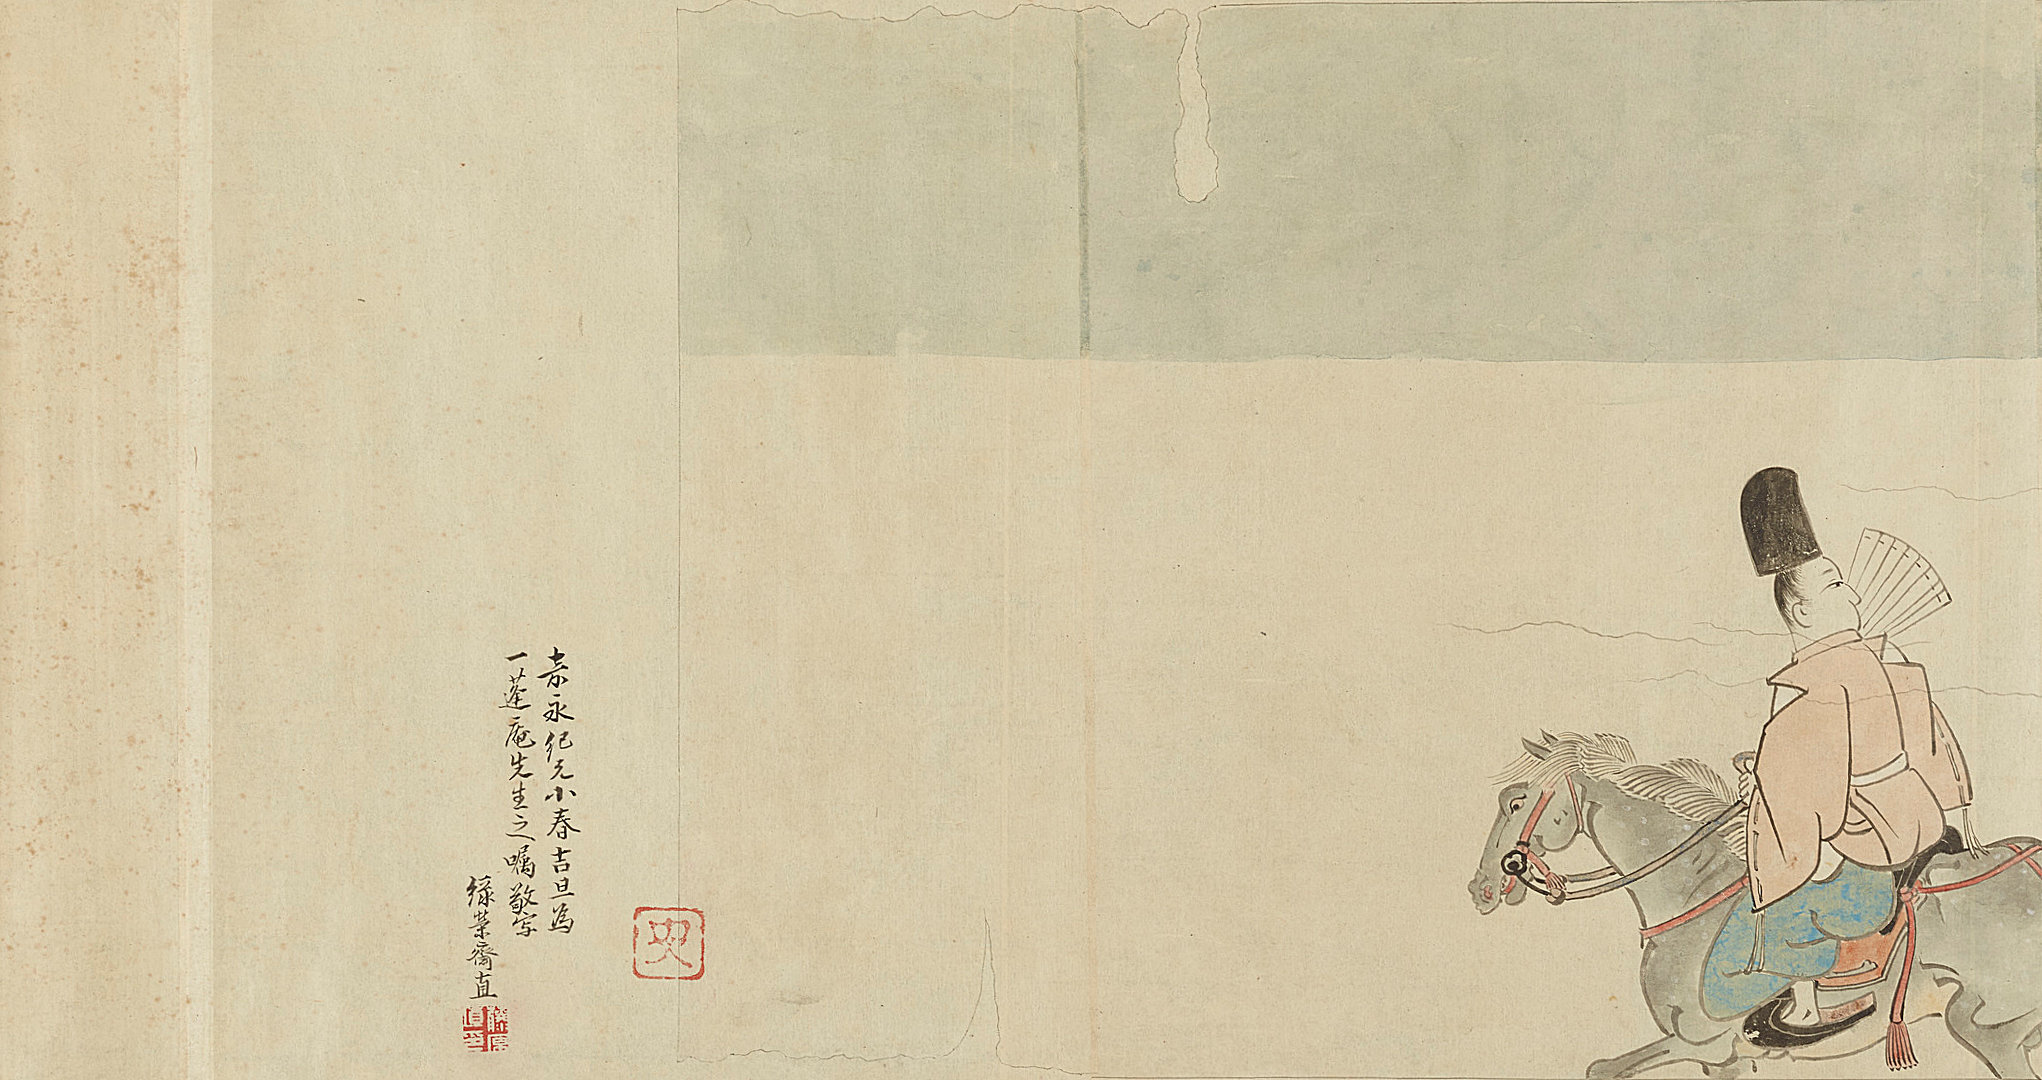 嘉永紀元小春吉旦為
一蓬庵先生之嘱敬写
緑榮齋直